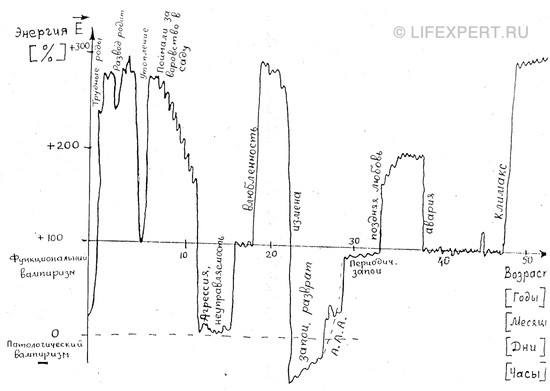 © LIFEXPERT.RU
Энергия E
[%]
+300
+200
+100
0
Функциональный
вампиризм
Патологический
вампиризм
Трудные роды
Развод родит.
Утопление
Поймали за
воровство в
саду
Агрессия,
неуправляемость
влюбленность
измена
запои, разврат
А.Л.А.
Периодич.
запои
поздняя любовь
авария
климакс
10
20
30
40
50
Возраст
[Годы]
[Месяцы
[Дни]
[Часы]